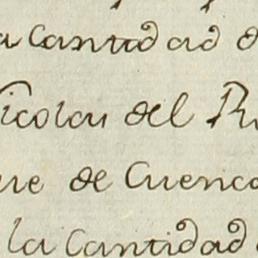 a cantidad d
Nicolau del R
ue de Cuenca
la Cantidad d